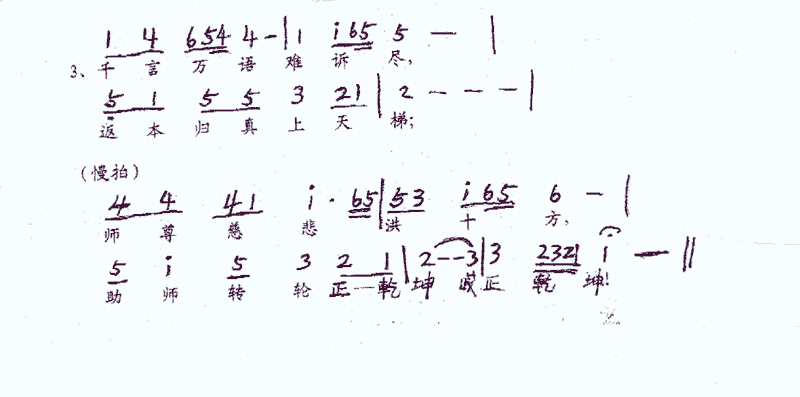 1 4 654 4 - | 1 i65 5 — |
3、千 言 万 语 难 诉 尽,
5 1 5 5 3 21 | 2 - - - |
返 本 归 真 上 天 梯;
(慢拍)
4 4 41 i · 65 | 53 i65 6 — |
师 尊 慈 悲 洪 十 方,
5 i 5 3 2 1 | 2 - - 3 | 3 2321 i — ‖
助 师 转 轮 正一乾 坤 正 乾 坤!